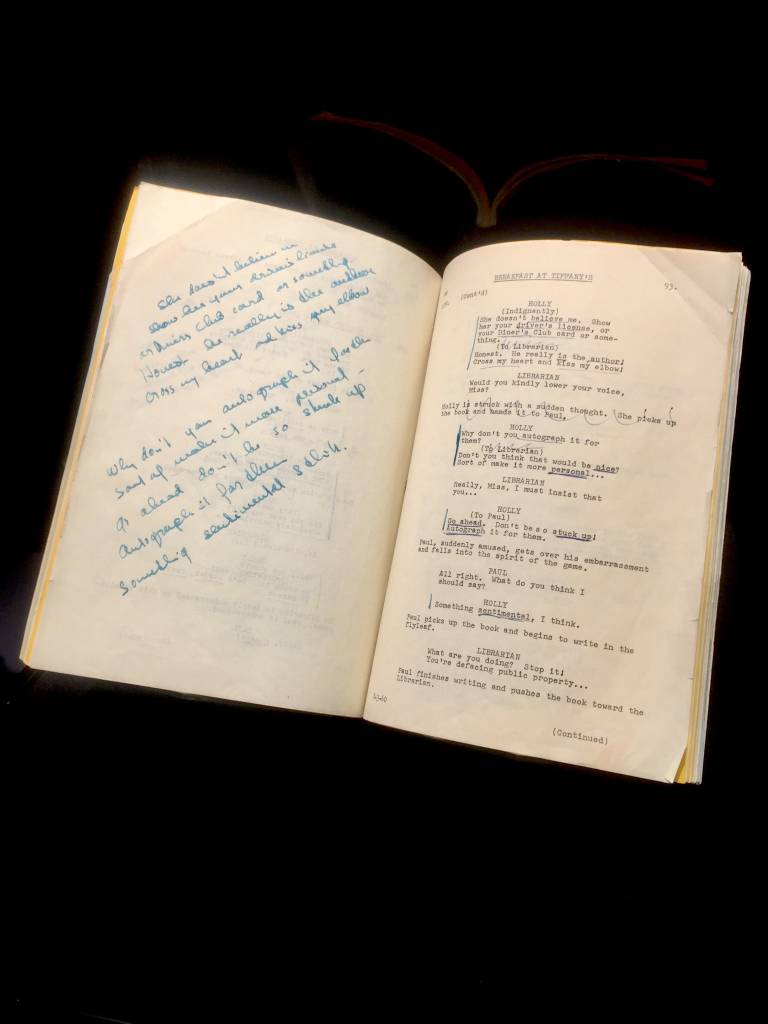 She doesn't believe me
show her your drivers license
or Diners Club card or something.
Honest he really is the author
Cross my heart and kiss my elbow
Why don't you autograph it for the
Sort of make it more personal -
Go ahead don't be so stuck up
Autograph it for them
Something sentimental I think.
BREAKFAST AT TIFFANY'S
93.
(Cont'd)
HOLLY
(Indignantly)
She doesn't believe me. Show
her your driver's license, or
your Diner's Club card or some-
thing.
(To Librarian)
Honest. He really is the author!
Cross my heart and kiss my elbow!
LIBRARIAN
Would you kindly lower your voice,
Miss?
Holly is struck with a sudden thought. She picks up
the book and hands it to Paul.
HOLLY
Why don't you autograph it for
them?
(To Librarian)
Don't you think that would be nice?
Sort of make it more personal...
LIBRARIAN
Really, Miss, I must insist that
you...
HOLLY
(To Paul)
Go ahead. Don't be so stuck up!
Autograph it for them.
Paul, suddenly amused, gets over his embarrassment
and falls into the spirit of the game.
PAUL
All right. What do you think I
should say?
HOLLY
Something sentimental, I think.
Paul picks up the book and begins to write in the
flyleaf.
LIBRARIAN
What are you doing? Stop it!
You're defacing public property...
Paul finishes writing and pushes the book toward the
Librarian.
(Continued)